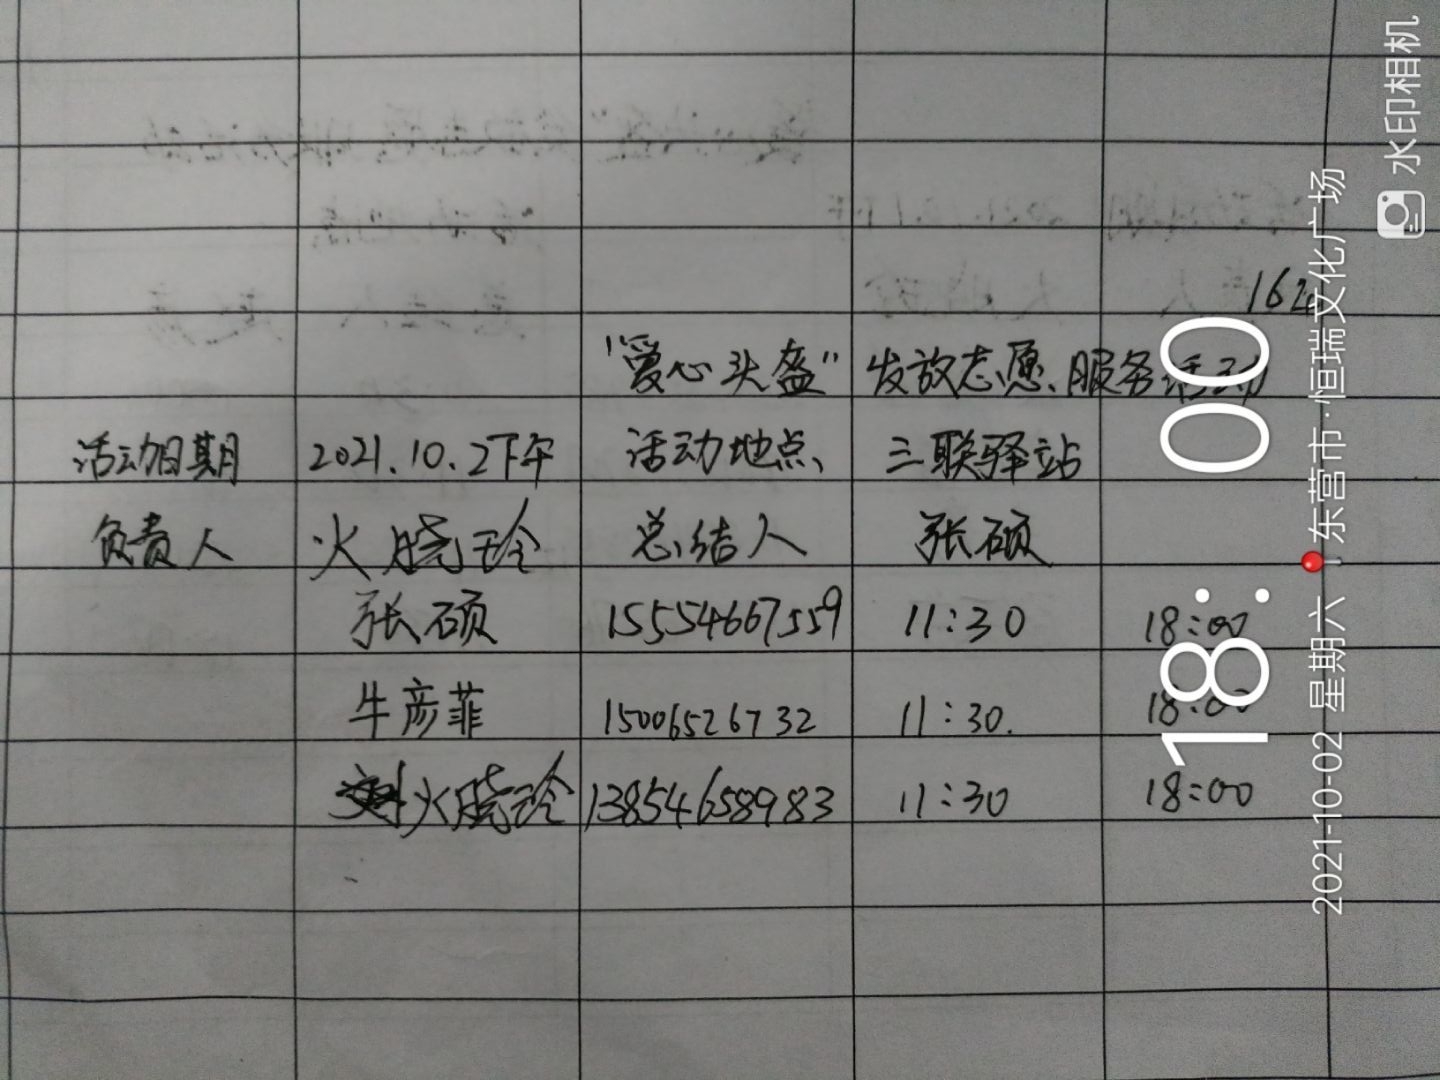 162
"爱心头盔"发放志愿服务活动
活动日期 2021.10.2下午 活动地点 三联驿站
负责人 火晓玲 总结人 张硕
张硕 15554667559 11:30 18:00
牛彦菲 15006526732 11:30. 18:00
火晓玲 13854658983 11:30 18:00
18:00
2021-10-02 星期六 东营市·恒瑞文化广场
水印相机